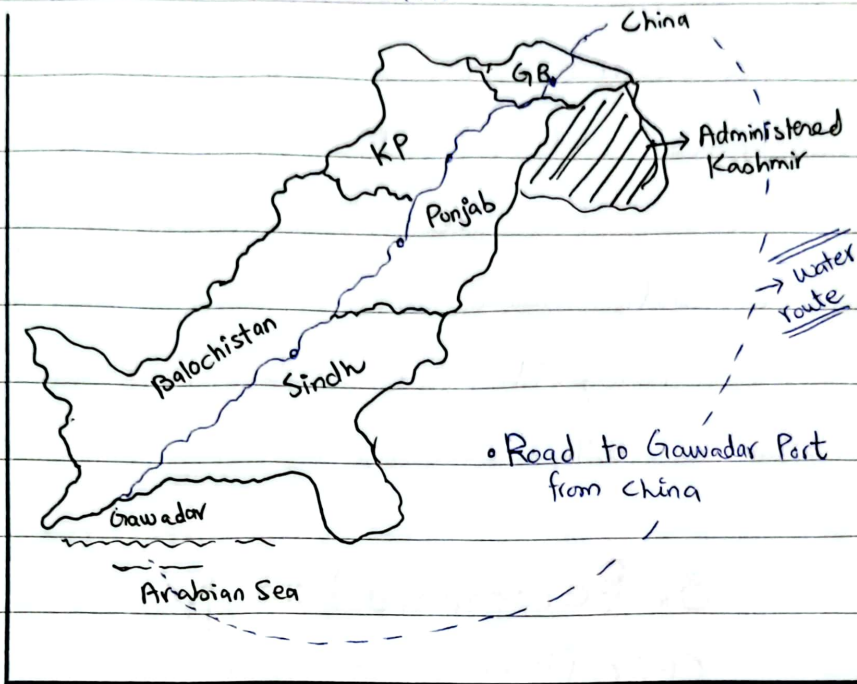 China
GB
→ Administered
Kashmir
KP
Punjab
→ water
route
Balochistan
Sindh
• Road to Gawadar Port
from China
Gawadar
Arabian Sea